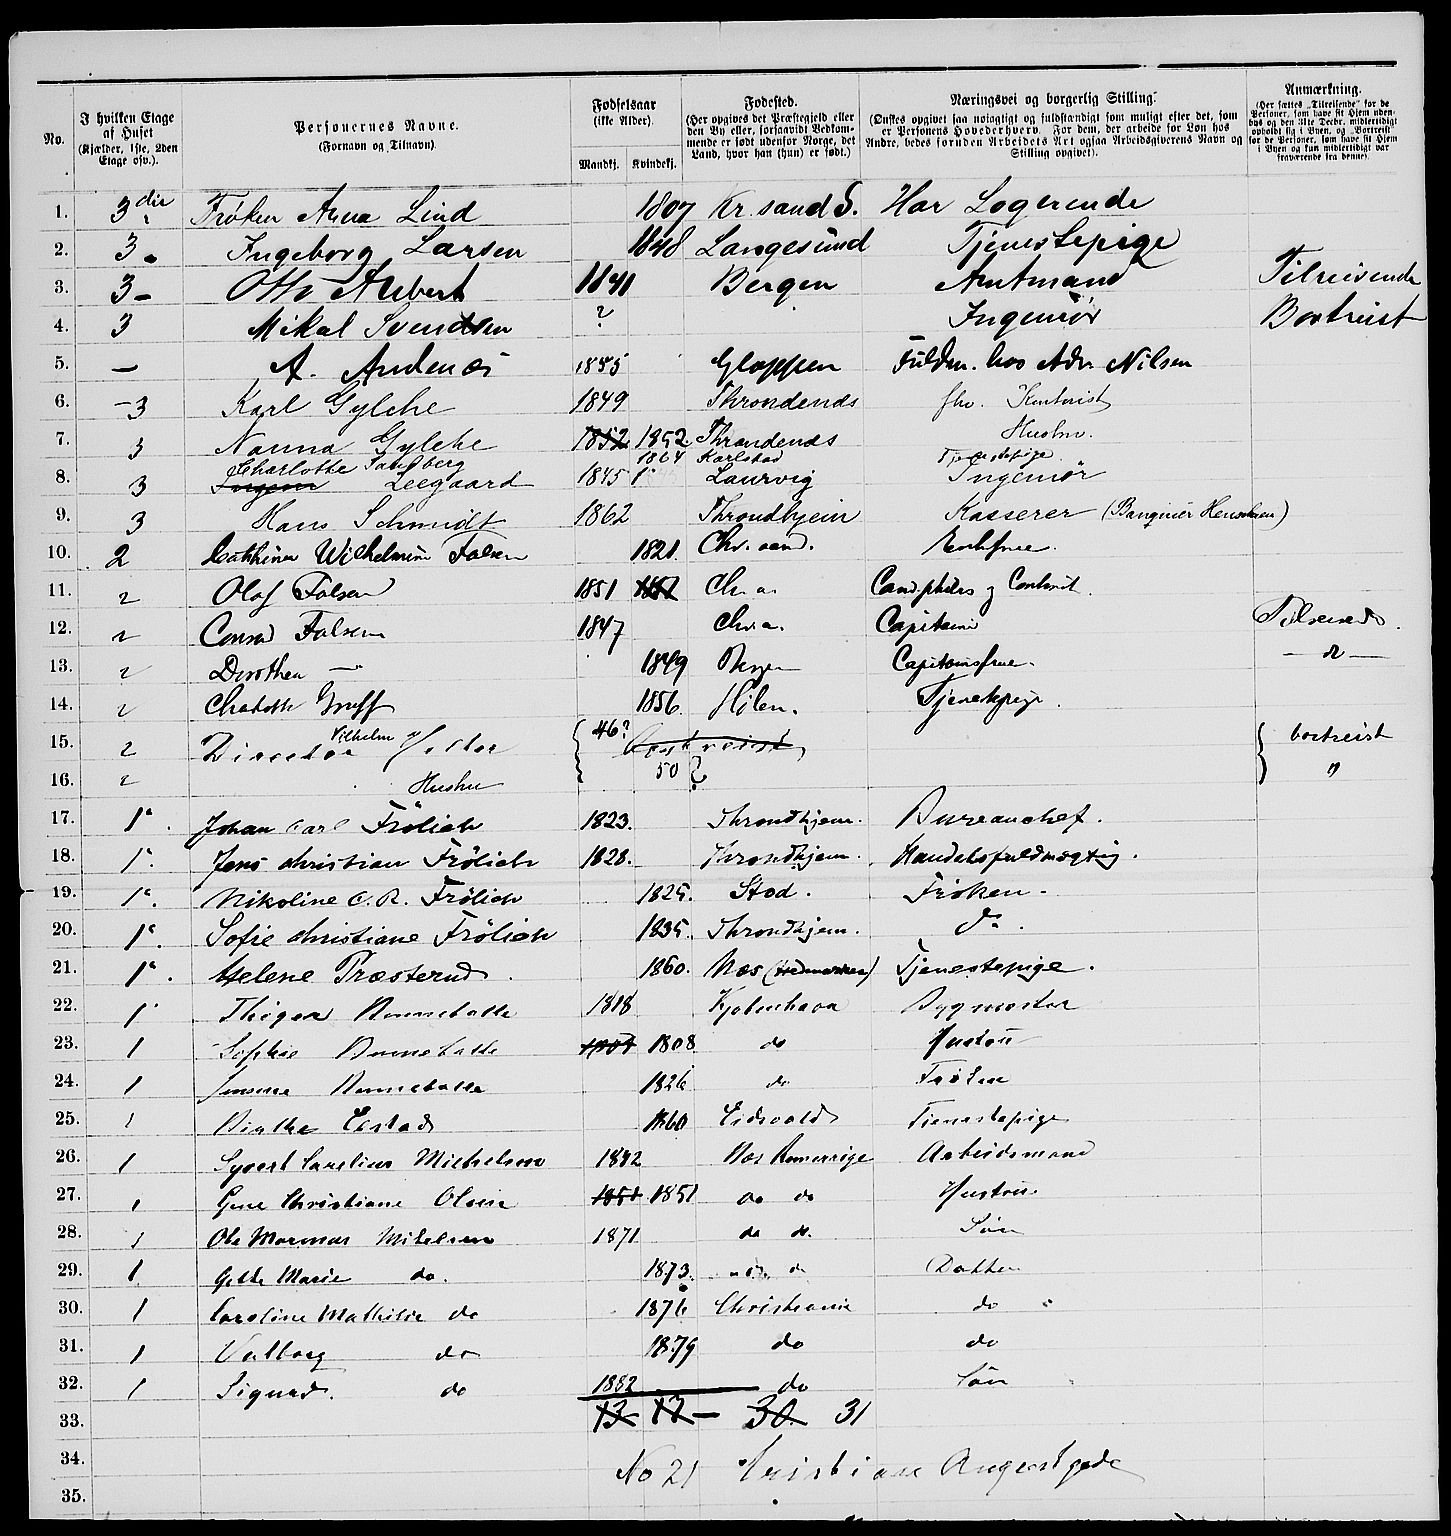 No.
I hvilken Etage af Huset (Kjælder, 1ste, 2den Etage osv.).
Personernes Navne. (Fornavn og Tilnavn).
Fødselsaar (ikke Alder).
Mandkj. Kvindekj.
Fødested. (Her opgives det Præstegjeld eller den By eller, forsaavidt Vedkommende er født udenfor Norge, det Land, hvor han (hun) er født.)
Næringsvei og borgerlig Stilling. (Ønskes opgivet saa nøiagtigt og fuldstændigt som muligt efter det, som er Personens Hovederhverv. For dem, der arbeide for Løn hos Andre, bedes foruden Arbeidets Art ogsaa Arbeidsgiverens Navn og Stilling opgivet).
Anmærkning. (Her sættes „Tilreisende" for de Personer, som have sit Hjem udenbys og den 31te Decbr. midlertidigt opholdt sig i Byen, og „Bortreist" for de Personer, som have sit Hjem i Byen og kun midlertidigt var fraværende fra denne).
1. 3die Frøken Anna Lind 1807 Kr.sand S. Har Logerende
2. 3 Ingeborg Larsen 1848 Langesund Tjenestepige
3. 3 Otto Aubert 1841 Bergen Amtmand Tilreisende
4. 3 Mikal Svendsen ? Ingeniør Bortreist
5. — A. Andenæs 1855 Gloppen Fuldm. hos Adv. Nilsen
6. 3 Karl Gylche 1849 Throndends fhv. Kontorist
7. 3 Nanna Gylche 1852 1852 Throndends Hustru.
Charlotte Sandberg 1864 Karlstad Tjenestepige
8. 3 Leegaard 1845 Laurvig Ingeniør
9. 3 Hans Schmidt 1862 Throndhjem Kasserer
10. 2 Cathrine Wilhelmine Falsen 1821. Chr.sand. Enkefrue.
11. 2 Olaf Falsen 1851 Chr.a. Cand.philos og Contorist.
12. 2 Conrad Falsen 1847 Chr.a. Capitain Tilreisende.
13. 2 Dorothea — 1849 Bergen Capitainsfrue. — do —
14. 2 Charlotte Graff 1856. Hølen. Tjenestepige.
15. 2 Director Vilhelm 46? bortreist bortreist
16. 2 Hustru 50 ? "
17. 1. Johan Carl Frölich 1823. Throndhjem. Bureauchef.
18. 1. Jens Christian Frölich 1828. Throndhjem. Handelsfuldmægtig.
19. 1. Nikoline C. R. Frölich 1825. Stod. Frøken.
20. 1. Sofie Christiane Frölich 1835. Throndhjem. do.
21. 1. Helene Præsterud. 1860. Næs (Hedmarken) Tjenestepige.
22. 1 1818 Kjøbenhavn Bygmester
23. 1 Sophie 1808 do Hustru
24. 1 1826 do Frøken
25. 1 1860 Eidsvold Tjenestepige
26. 1 Syvert Carelius Michelsen 1842 Næs Romerrige Arbeidsmand
27. 1 Christiane Olsen 1851 1851 do do Hustru
28. 1 Ole Mikelsen 1871 do do. Søn
29. 1 Marie do. 1873. do Datter
30. 1 Caroline Mathilde do 1876 Christiania do
31. 1 Valborg do 1879 do do
32. 1 Sigurd. do 1882 do Søn
33. 13 17 30. 31
34. No 21 Kristian Augustgade
35.